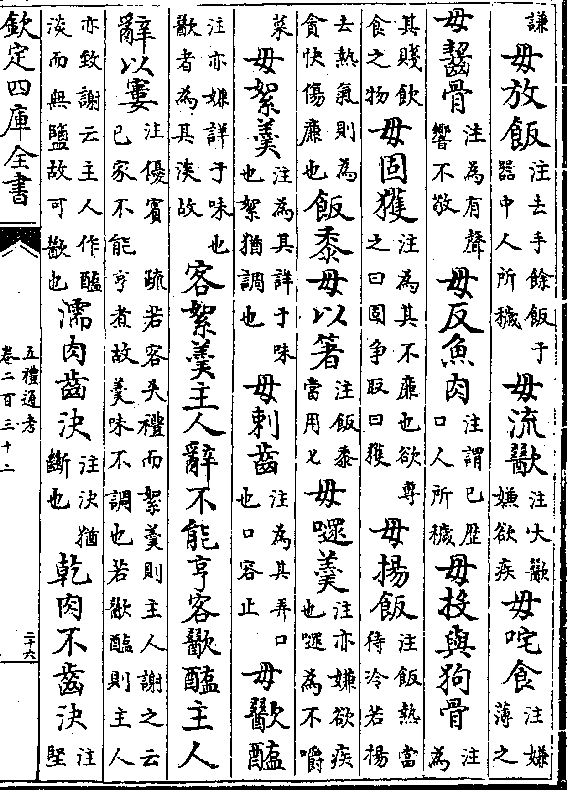 謙毋放飯注去手餘飯于器中人所穢毋流歠注大歠嫌欲疾毋咤食注嫌薄之
毋齧骨注為有聲響不敬毋反魚肉注謂已歴口人所穢毋投與狗骨注為
其賤飲食之物毋固獲注為其不亷也欲專之曰固爭取曰獲毋揚飯注飯熱當待冷若揚
去熱氣則為貪快傷亷也飯黍毋以箸注飯黍當用匕毋嚃羮注亦嫌欲疾也嚃為不嚼
菜毋絮羮注為其詳于味也絮猶調也毋刺齒注為其弄口也口容止毋歠醢
注亦嫌詳于味也歠者為其淡故客絮羮主人辭不能亨客歠醢主人
辭以窶注優賓疏若客失禮而絮羮則主人謝之云已家不能亨煮故羮味不調也若歠醢則主人
亦致謝云主人作醢淡而無鹽故可歠也濡肉齒決注決猶斷也乾肉不齒決注堅
欽定四庫全書
五禮通考
卷二百三十二
二十六